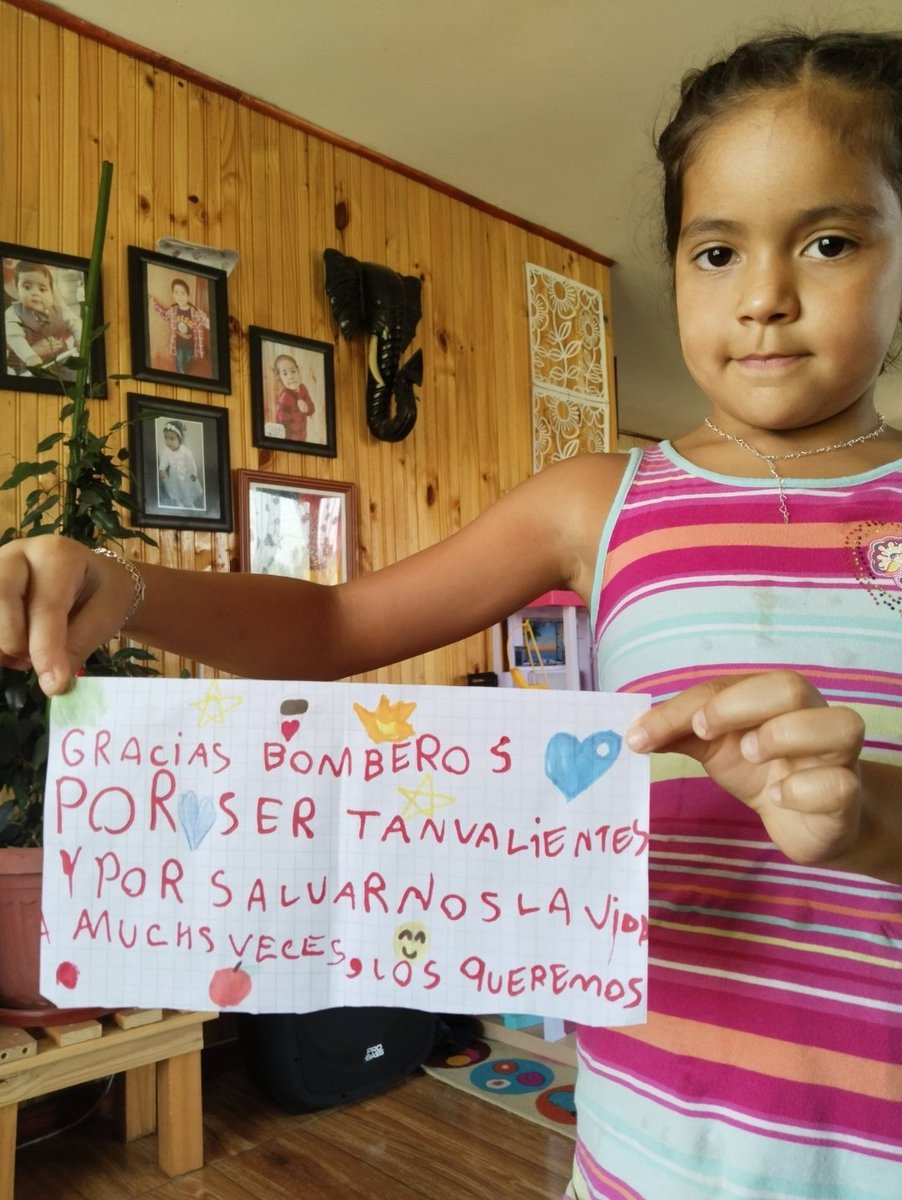 GRACiAS BOMBEROS
POR SER TANVALiENTES
Y POR SALVARNOS LA ViDA
A MUCHS VECES, LOS QUEREMOS
PRO
BASS